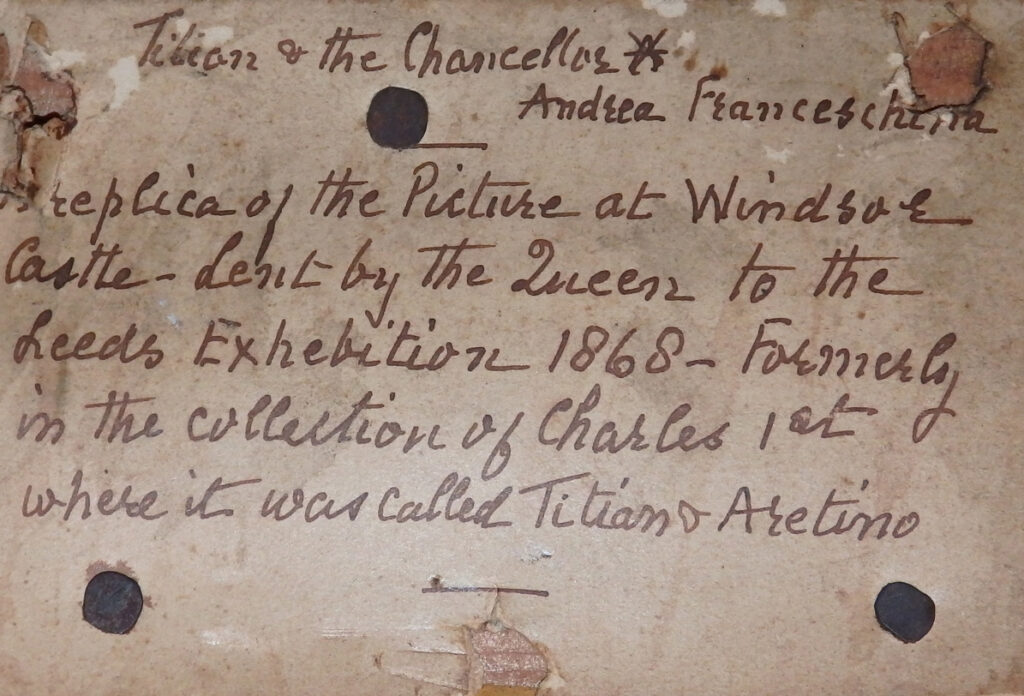 Titian & the Chancellor
Andrea Franceschina
replica of the Picture at Windsor
Castle - Lent by the Queen to the
Leeds Exhebition 1868 - Formerly
in the collection of Charles 1st
where it was called Titian & Aretino